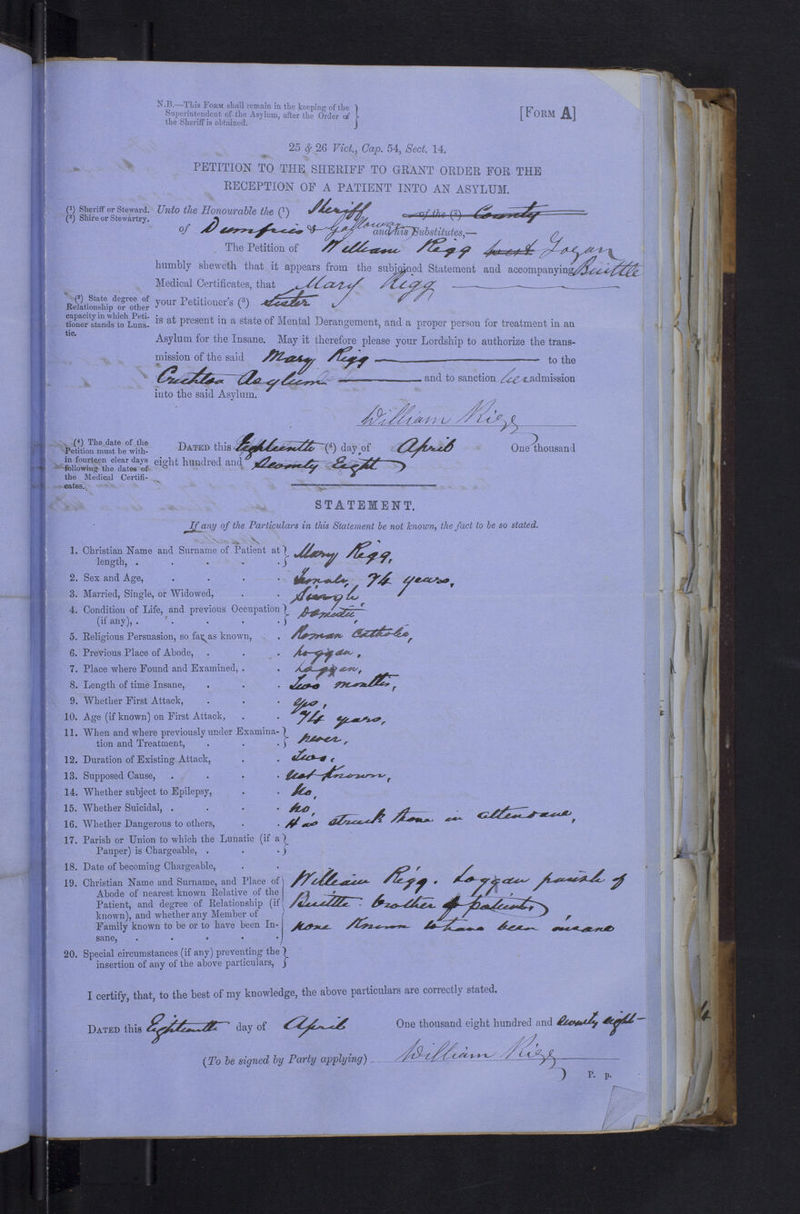 N.B.—This Form shall remain in the keeping of the
Superintendent of the Asylum, after the Order of
the Sheriff is obtained.
[Form A]
25 & 26 Vict., Cap. 54, Sect. 14.
PETITION TO THE SHERIFF TO GRANT ORDER FOR THE
RECEPTION OF A PATIENT INTO AN ASYLUM.
(¹) Sheriff or Steward.
(²) Shire or Stewartry.
Unto the Honourable the (¹) Sheriff of the (²) County
of Dumfries & Galloway and his Substitutes,—
The Petition of William Rigg Logan
humbly sheweth that it appears from the subjoined Statement and accompanying Buittle
Medical Certificates, that Mary Rigg
(³) State degree of
Relationship or other
capacity in which Peti-
tioner stands to Luna-
tic.
your Petitioner's (³) Sister
is at present in a state of Mental Derangement, and a proper person for treatment in an
Asylum for the Insane. May it therefore please your Lordship to authorize the trans-
mission of the said Mary Rigg to the
Crichton Asylum and to sanction her admission
into the said Asylum.
William Rigg
(⁴) The date of the
Petition must be with-
in fourteen clear days
following the dates of
the Medical Certifi-
cates.
Dated this Eighteenth (⁴) day of April One thousand
eight hundred and Seventy Eight
STATEMENT.
If any of the Particulars in this Statement be not known, the fact to be so stated.
1. Christian Name and Surname of Patient at
length, . . . . . Mary Rigg,
2. Sex and Age, . . . . Female, 74 years,
3. Married, Single, or Widowed, . . Single
4. Condition of Life, and previous Occupation
(if any), . . . . . Domestic,
5. Religious Persuasion, so far as known, . Roman Catholic,
6. Previous Place of Abode, . . . Loggan,
7. Place where Found and Examined, . . Loggan,
8. Length of time Insane, . . . Two months,
9. Whether First Attack, . . . Yes,
10. Age (if known) on First Attack, . . 74 years,
11. When and where previously under Examina-
tion and Treatment, . . . Never,
12. Duration of Existing Attack, . . Two,
13. Supposed Cause, . . . . Not Known,
14. Whether subject to Epilepsy, . . No,
15. Whether Suicidal, . . . . No,
16. Whether Dangerous to others, . . Has struck those in attendance,
17. Parish or Union to which the Lunatic (if a
Pauper) is Chargeable, . . .
18. Date of becoming Chargeable, . .
19. Christian Name and Surname, and Place of
Abode of nearest known Relative of the
Patient, and degree of Relationship (if
known), and whether any Member of
Family known to be or to have been In-
sane, . . . . .
William Rigg. Loggan parish of
Buittle. Brother of patient
None Known to have been insane
20. Special circumstances (if any) preventing the
insertion of any of the above particulars,
I certify, that, to the best of my knowledge, the above particulars are correctly stated.
Dated this Eighteenth day of April One thousand eight hundred and Seventy eight
(To be signed by Party applying) William Rigg
P. p.